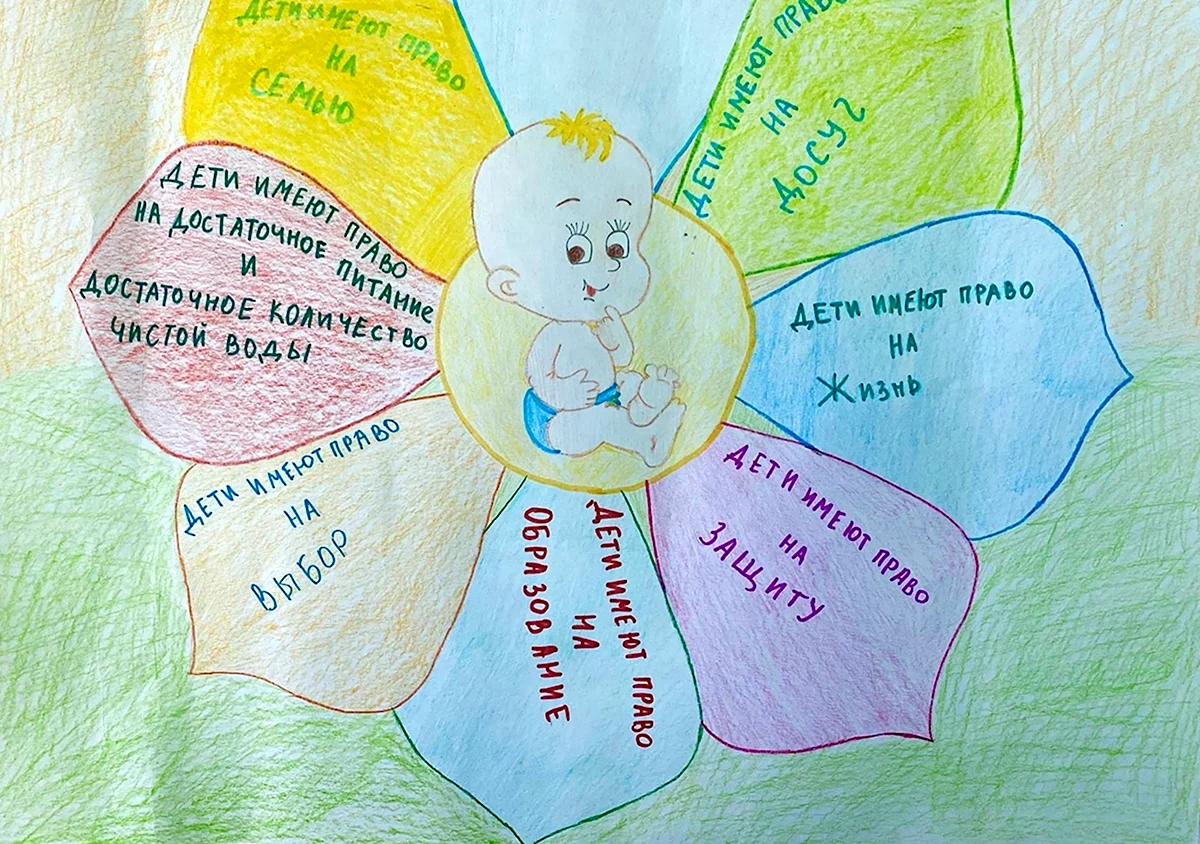 ДЕТИ ИМЕЮТ ПРАВО
НА
СЕМЬЮ
ДЕТИ ИМЕЮТ ПРАВО
НА
ДОСУГ
ДЕТИ ИМЕЮТ ПРАВО
НА ДОСТАТОЧНОЕ ПИТАНИЕ
И
ДОСТАТОЧНОЕ КОЛИЧЕСТВО
ЧИСТОЙ ВОДЫ
ДЕТИ ИМЕЮТ ПРАВО
НА
ЖИЗНЬ
ДЕТИ ИМЕЮТ ПРАВО
НА
ВЫБОР
ДЕТИ ИМЕЮТ ПРАВО
НА
ОБРАЗОВАНИЕ
ДЕТИ ИМЕЮТ ПРАВО
НА
ЗАЩИТУ